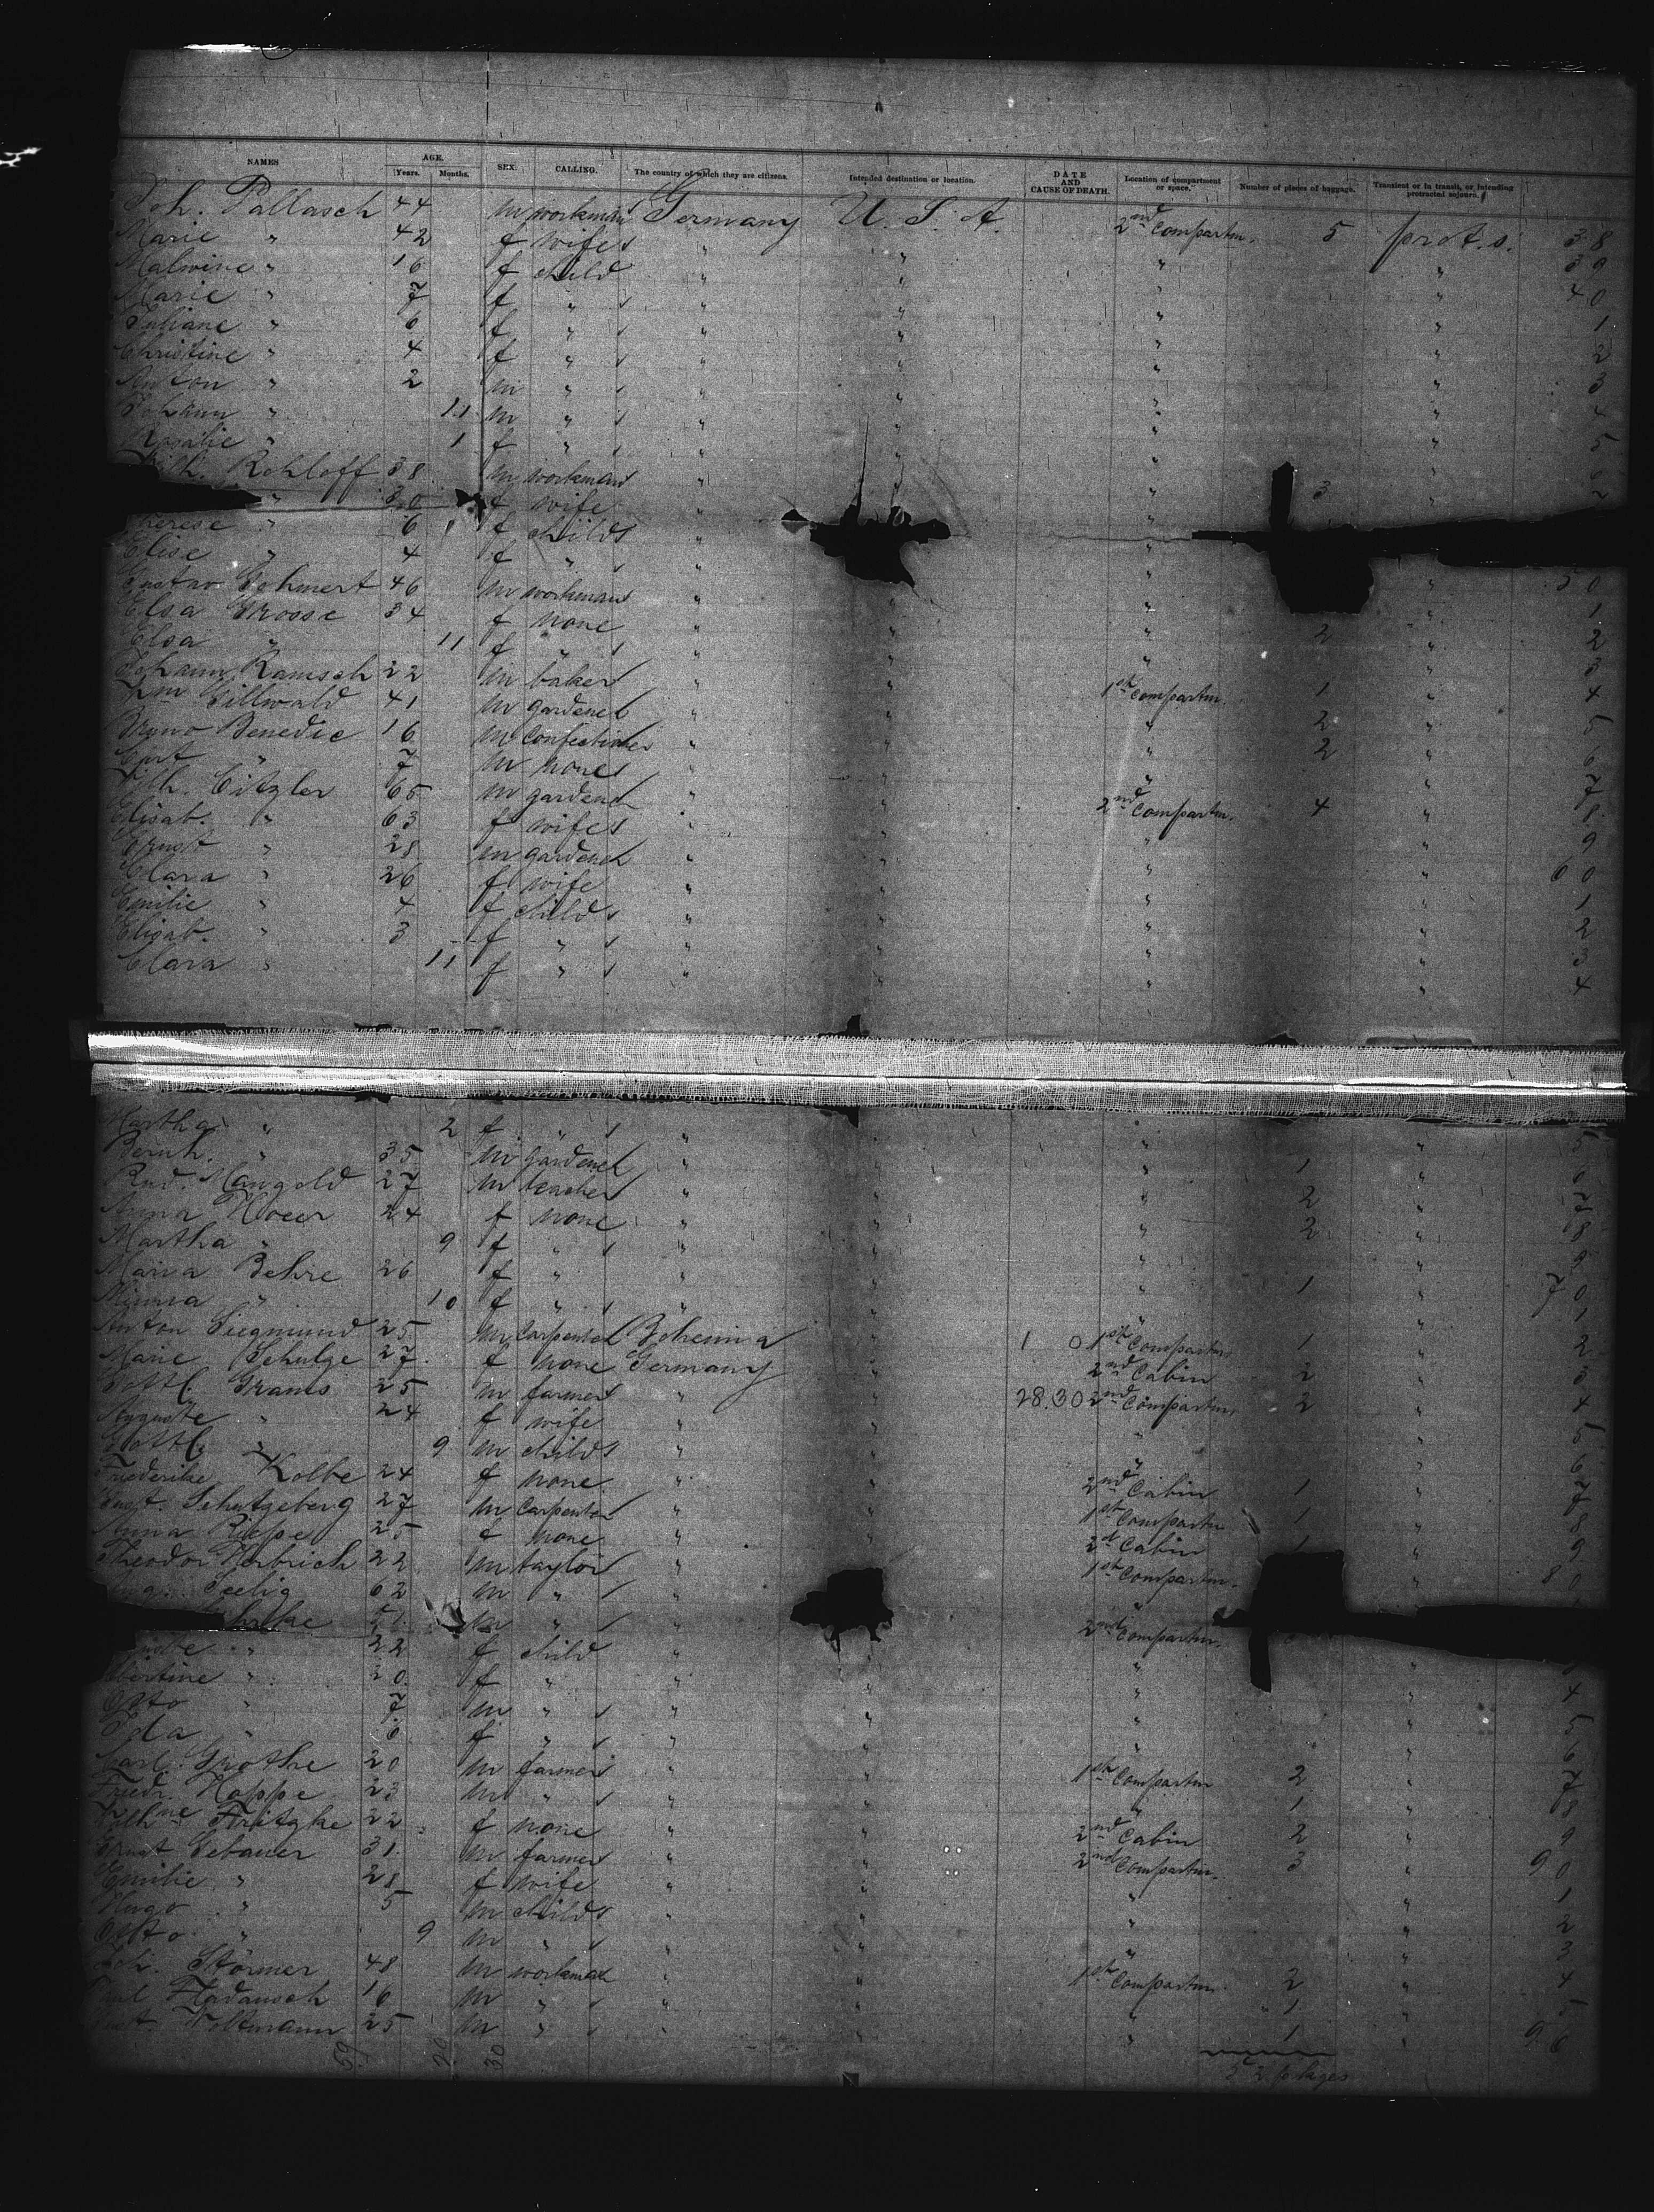 NAMES AGE. Years. Months. SEX. CALLING. The country of which they are citizens. Intended destination or location. DATE AND CAUSE OF DEATH. Location of compartment or space. Number of pieces of baggage. Transient or in transit, or intending protracted sojourn.
Joh. Pallasch 44 m workman Germany U. S. A. 2nd Compartm. 5 prot. s. 38
Marie " 42 f wife " " " " 39
Malwine " 16 f child " " " " 40
Marie " 7 f " " " " " 1
Juliane " 6 f " " " " " 2
Christine " 4 f " " " " " 3
Anton " 2 m " " " " " 4
Johann " 11 m " " " " " 5
Rosalie " 1 f " " " "
Wilh. Rohloff 38 m workman " " 3
" 30 f wife
Therese " 6 f child " "
Elise " 4 f " " "
Gustav 46 m workman " " " " 50
Elsa Grosse 34 f none " " " 2 " 1
Elsa " 11 f " " " " " 2
Johann Ramsch 22 m baker " " 1st Compartm. 1 " 3
Gillwald 41 m gardener " " " 2 " 4
Bruno Benedic 16 m " " " 2 " 5
Curt " 7 m none " " " " 6
Wilh. Citzler 65 m gardener " " 2nd Compartm. 4 " 7
Elisab. " 63 f wife " " " " 8
Ernst " 28 m gardener " " " " 9
Clara " 26 f wife " " " " 60
Emilie " 4 f child " " " " 1
Elisab. " 3 f " " " " " 2
Clara " 11 f " " " " " 3
4
Martha " 2 f " " " " " 5
Bernh. " 35 m gardener " " " 1 " 6
Rud. Mangold 27 m teacher " " " 2 " 7
Anna 24 f none " " " 2 " 8
Martha " 9 f " " " " " 9
Maria Behre 26 f " " " " 1 " 70
Minna " 10 f " " " " " 1
Anton Siegmund 25 m Carpenter Bohemia " 1 0 1st Compartm 1 " 2
Marie Schulze 27 f none Germany " 2nd Cabin 2 " 3
Gottl. Grams 25 m farmer " " 28.30 2nd Compartm 2 " 4
Auguste " 24 f wife " " " " 5
Gottl. " 9 m child " " " " 6
Friederike Kolbe 24 f none " " 2nd Cabin 1 " 7
Aug. Schutzeberg 27 m Carpenter " " 1st Compartm 1 " 8
Anna Riepe 25 f none " " 2d Cabin 1 " 9
Theodor Herbrich 22 m taylor " 1st Compartm. " 80
Aug. Seelig 62 m " " "
51 m " " 2nd Compartm.
" 22 f child " " "
Albertine " 20 f " " " " " 4
Otto " 7 m " " " " " 5
Ida " 6 f " " " " " 6
Carl Grothe 20 m farmer " " 1st Compartm 2 " 7
Friedr. Hoppe 23 m " " " " 1 " 8
Wilhne Fritzke 22 f none " " 2nd Cabin 2 " 9
Ernst Gebauer 31 m farmer " " 2nd Compartm. 3 " 90
Emilie " 28 f wife " " " " 1
Hugo " 5 m child " " " " 2
Otto " 9 m " " " " " 3
Joh. Störmer 48 m workman " " 1st Compartm. 2 " 4
16 m " " " " 1 " 5
Voltmann 25 m " " " " 1 " 96
30
52 pckges